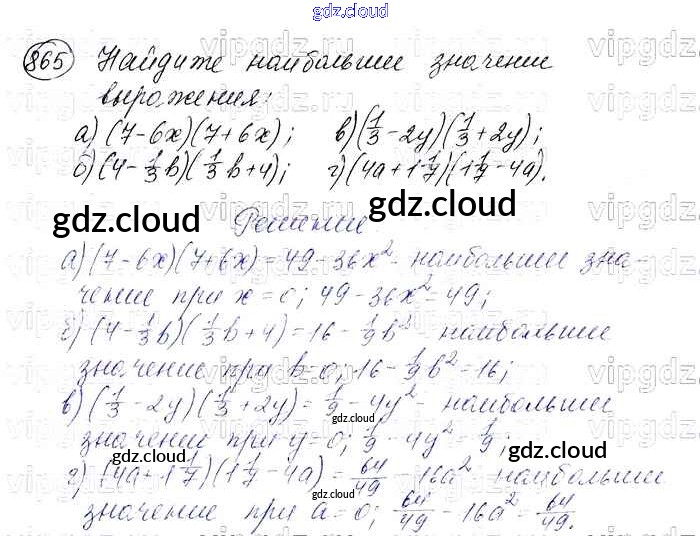 gdz.cloud
865 Найдите наибольшее значение
выражения:
а) (7-6x)(7+6x); в) (1/3 - 2y)(1/3 + 2y);
б) (4 - 1/3 b)(1/3 b + 4); г) (4a + 1 1/7)(1 1/7 - 4a).
gdz.cloud gdz.cloud
Решение
а) (7-6x)(7+6x) = 49 - 36x² - наибольшее зна-
чение при x = 0; 49 - 36x² = 49;
б) (4 - 1/3 b)(1/3 b + 4) = 16 - 1/9 b² наибольшее
значение при b = 0; 16 - 1/9 b² = 16;
в) (1/3 - 2y)(1/3 + 2y) = 1/9 - 4y² - наибольшее
gdz.cloud
значение при y = 0; 1/9 - 4y² = 1/9;
gdz.cloud gdz.cloud
г) (4a + 1 1/7)(1 1/7 - 4a) = 64/49 - 16a² наибольшее
gdz.cloud
значение при a = 0; 64/49 - 16a² = 64/49.